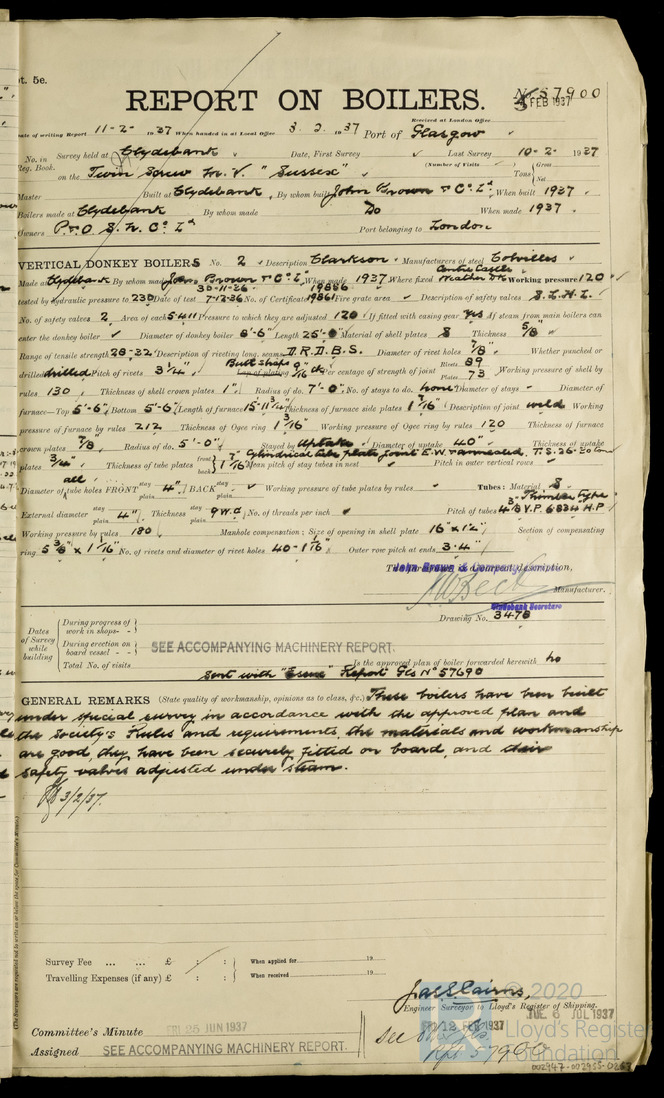 pt. 5e.
No. 57900
REPORT ON BOILERS.
4 FEB 1937
Received at London Office
Date of writing Report 11-2-1937 When handed in at Local Office 3.2.1937 Port of Glasgow
No. in Reg. Book. Survey held at Clydebank Date, First Survey Last Survey 10-2-1937
(Number of Visits) Gross
on the Twin Screw M.V. "Sussex" Tons Net
Master Built at Clydebank By whom built John Brown & Co Ld When built 1937
Boilers made at Clydebank By whom made Do When made 1937
Owners P & O S. N. Co Ld Port belonging to London
VERTICAL DONKEY BOILERS No. 2 Description Clarkson Manufacturers of steel Colvilles
Made at Clydebank By whom made John Brown & Co Ld When made 1937 Where fixed Centre Castle Weather Dk Working pressure 120
tested by hydraulic pressure to 230 Date of test 30-11-36 7-12-36 No. of Certificate 19866 19861 Fire grate area Description of safety valves S.L.H.L.
No. of safety valves 2 Area of each 5.411 Pressure to which they are adjusted 120 If fitted with casing gear yes If steam from main boilers can
enter the donkey boiler Diameter of donkey boiler 8'-6" Length 25'-0" Material of shell plates S Thickness 5/8"
Range of tensile strength 28-32 Description of riveting long. seams D.R.D.B.S. Diameter of rivet holes 7/8" Whether punched or
drilled drilled Pitch of rivets 3 1/4" Butt straps Lap of plating 9/16" Per centage of strength of joint Rivets 89 Plates 73 Working pressure of shell by
rules 130 Thickness of shell crown plates 1" Radius of do. 7'-0" No. of stays to do. none Diameter of stays Diameter of
furnace—Top 5'-6" Bottom 5'-6" Length of furnace 15-11 3/4" Thickness of furnace side plates 1 7/16" Description of joint weld Working
pressure of furnace by rules 212 Thickness of Ogee ring 1 3/16" Working pressure of Ogee ring by rules 120 Thickness of furnace
crown plates 7/8" Radius of do. 5'-0" Stayed by Uptake Diameter of uptake 40" Thickness of uptake
plates 3/4" Thickness of tube plates front back 1 7/16" Cylindrical tube plate joint E.W. & annealed, T.S. 26-30 tons Mean pitch of stay tubes in nest Pitch in outer vertical rows
Diameter of tube holes FRONT stay plain 4" BACK stay plain Working pressure of tube plates by rules Tubes: Material S
External diameter stay plain 4" Thickness stay plain 9 W.G No. of threads per inch Pitch of tubes 3" Thimble type 4 7/8 V.P. 6.834 H.P
Working pressure by rules 180 Manhole compensation; Size of opening in shell plate 16" x 12" Section of compensating
ring 5 3/8" x 1 1/16" No. of rivets and diameter of rivet holes 40-1 1/16" Outer row pitch at ends 3.4"
The foregoing is a correct description,
John Brown & Company Ld.
Manufacturer.
Clydebank Secretary
Drawing No. 3478
Dates of Survey while building
During progress of work in shops - -
During erection on board vessel - - -
Total No. of visits
SEE ACCOMPANYING MACHINERY REPORT.
Is the approved plan of boiler forwarded herewith no
Sent with "Essex" Report Gls No 57690
GENERAL REMARKS (State quality of workmanship, opinions as to class, &c.) These boilers have been built
under special survey in accordance with the approved plan and
the Society's Rules and requirements, the materials and workmanship
are good, they have been securely fitted on board, and their
safety valves adjusted under steam.
3/2/37.
(The Surveyors are requested not to write on or below the space for Committee's Minute.)
Survey Fee ... ... £ : : When applied for 19
Travelling Expenses (if any) £ : : When received 19
Jas S. Cairns,
Engineer Surveyor to Lloyd's Register of Shipping.
Committee's Minute FRI 25 JUN 1937 FRI 12 FEB 1937 TUE 6 JUL 1937
Assigned SEE ACCOMPANYING MACHINERY REPORT.
Rpt 57900
© 2020
Lloyd's Register
Foundation
002947-002955-0263